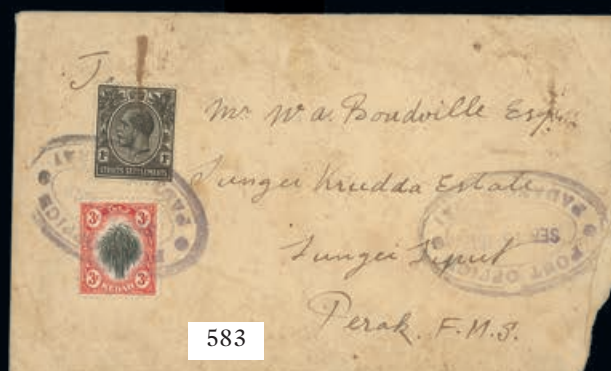 To
Mr W. a. Boudville Esq.
Sungei Krudda Estate
Sungei Siput
Perak. F.M.S.
1c 1c
STRAITS SETTLEMENTS
3c 3c
3c 3c
KEDAH
OFFICE
POST OFFICE
SEP
PADANG
583